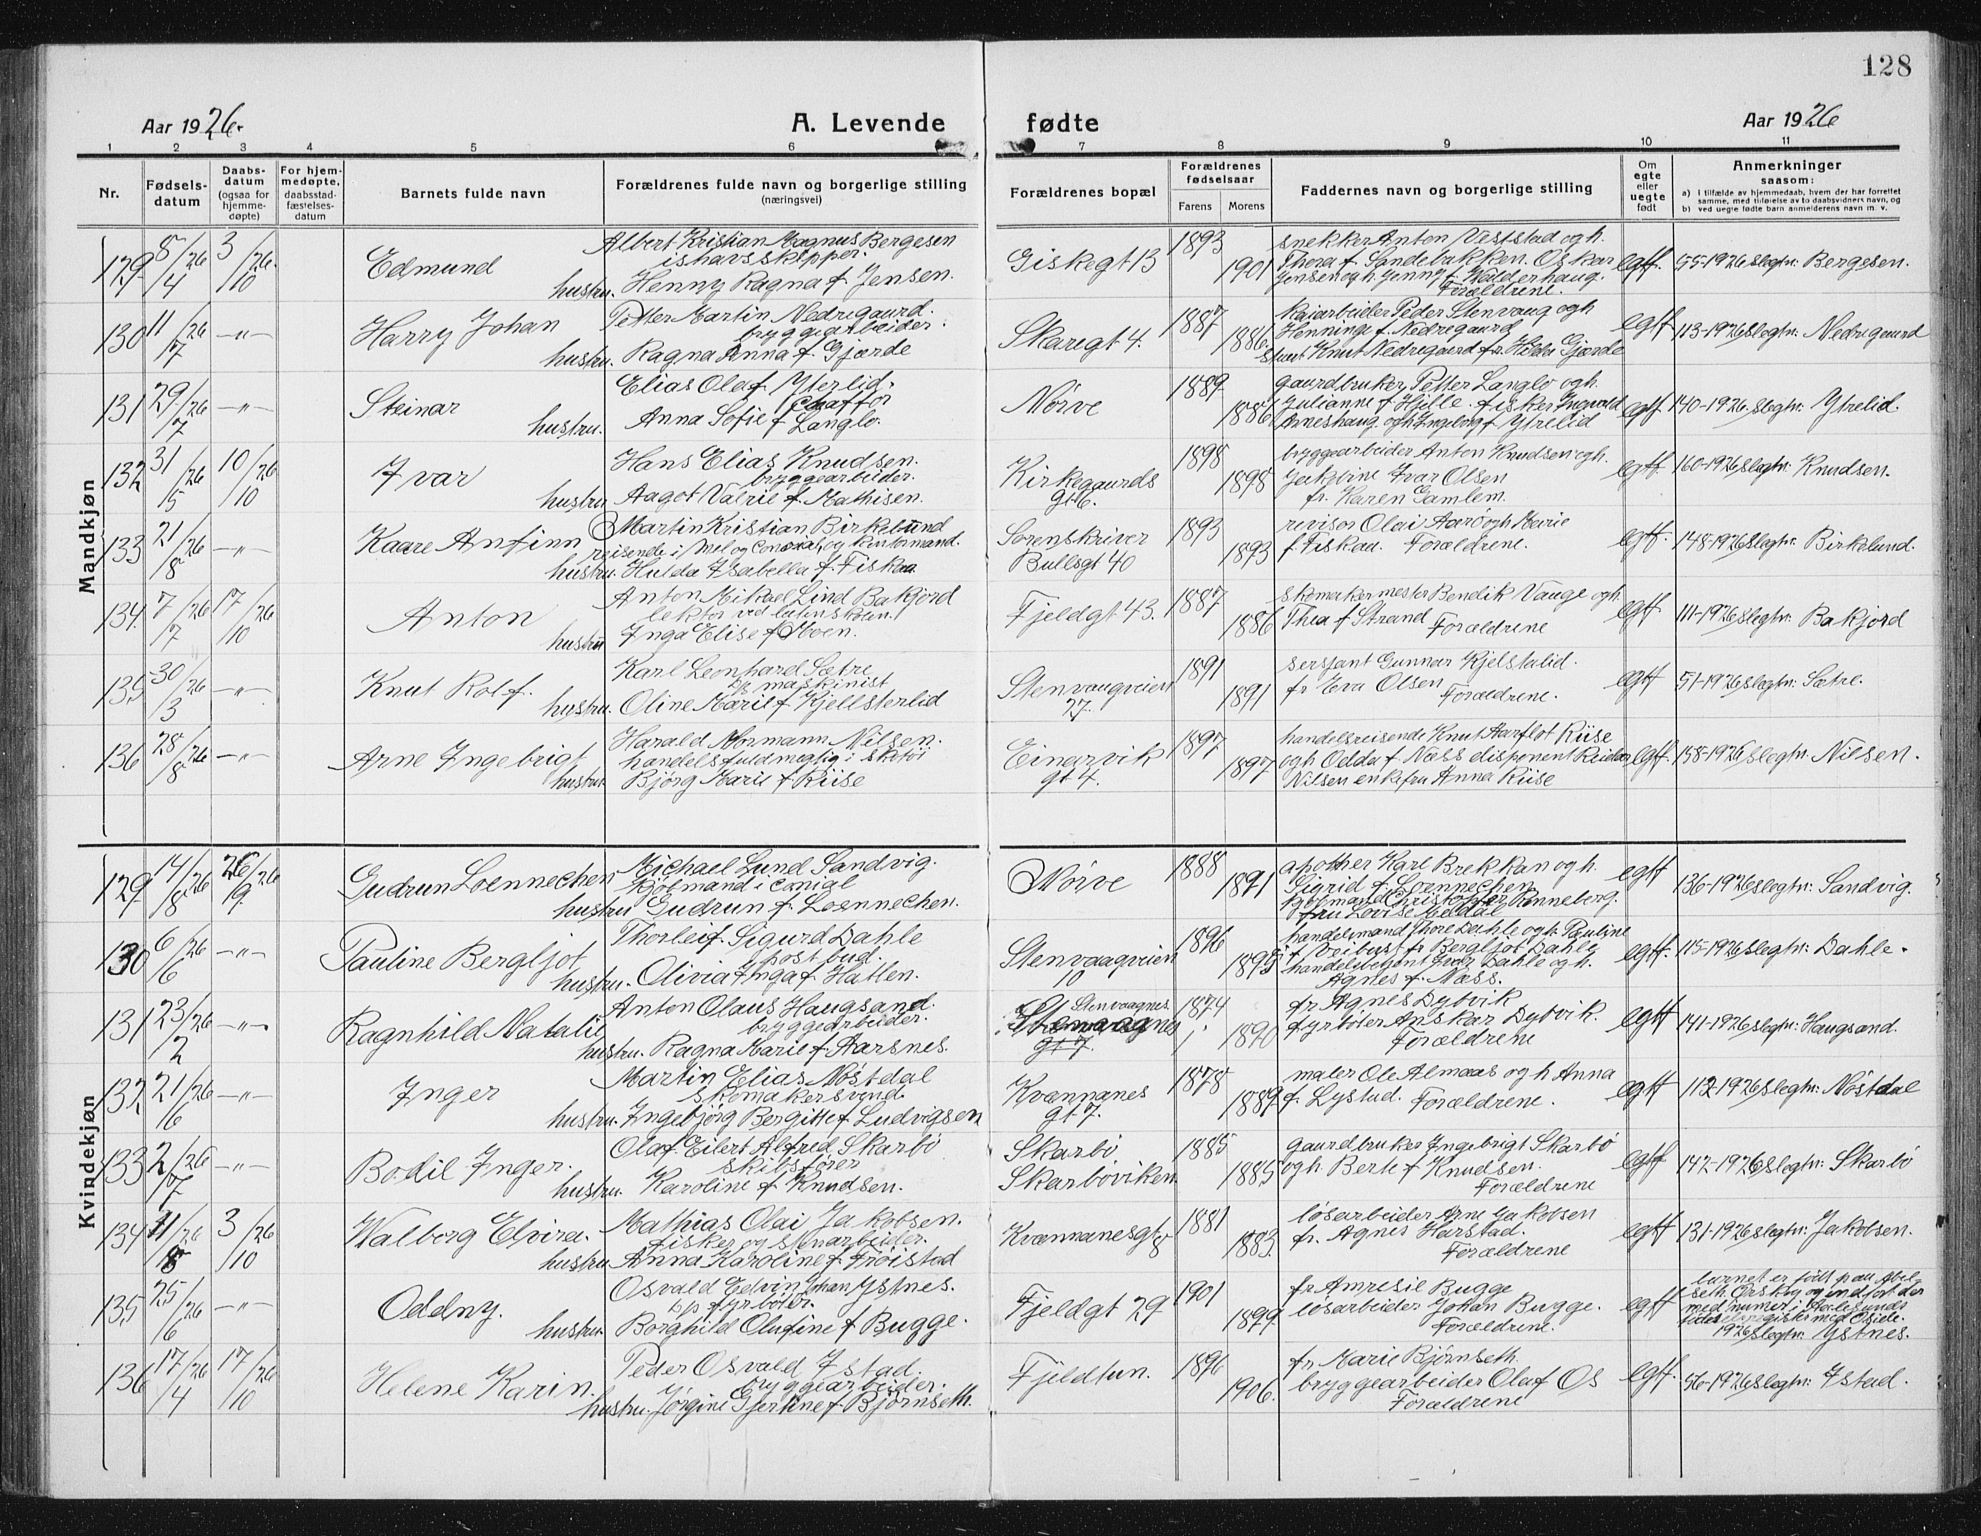 128
Aar 1926.
A. Levende
fødte
Aar 1926
1 2 3 4 5 6 7 8 9 10 11
Nr.
Fødsels-
datum
Daabs-
datum
(ogsaa for
hjemme-
døpte)
For hjem-
medøpte,
daabsstad-
fæstelses-
datum
Barnets fulde navn
Forældrenes fulde navn og borgerlige stilling
(næringsvei)
Forældrenes bopæl
Forældrenes
fødselsaar
Farens Morens
Faddernes navn og borgerlig stilling
Om
egte
eller
uegte
født
Anmerkninger
saasom:
a) I tilfælde av hjemmedaab, hvem der har forrettet
samme, med tilføielse av to daabsvidners navn, og
b) ved uegte fødte barn anmelderens navn m. v.
Mandkjøn
129 8/4 26 3/10 26. Edmund
Albert Kristian Magnus Bergesen
ishavsskipper.
hustru. Henny Ragna f. Jensen.
Giskegt 13 1893 1901
snekker Anton Veststad og h.
Thora f. Sandebakken. Oskar
Jensen og h. Jenny f. Walderhaug.
Forældrene.
egtf. 55-1926 slegtn: Bergesen.
130 11/7 26 -"- Harry Johan
Petter Martin Nedregaard.
bryggearbeider.
hustru. Ragna Anna f. Gjærde
Skaregt 4. 1887 1886.
kaiarbeider Peder Stenvaag og h
Henninge f. Nedregaard
Knut Nedregaard fr. Hilda Gjærde
egtf 113-1926 slegtn: Nedregaard
131 29/7 26 -"- Steinar
Elias Olaf Yterlid.
hustru. Anna Sofie f. Langlo.
Nørve 1889 1886
gaardbruker Petter Langlo og h.
Julianne f. Hjelle. fisker Ingvald
Arneshaug og h Ingeborg f Ytrelid
egtf. 140-1926 slegtn: Ytrelid.
132 31/5 26 10/10 26 Ivar
Hans Elias Knudsen.
bryggearbeider.
hustru Aagot Valrie f. Mathisen.
Kirkegaards
gt 6. 1898 1898
bryggearbeider Anton Knudsen og h.
Jakobine Ivar Olsen
fr. Karen Gamlem.
egtf. 160-1926 slegtn: Knudsen.
133 21/8 26 -"- Kaare Anfinn
Martin Kristian Birkelund
reisende i Mel og kontormand.
hustru. Hulda Isabella f. Fiskaa
Sorenskriver
Bullsgt 40 1893 1893
revisor Olai Aarø og h Marie
f. Fiskaa. Forældrene.
egtf. 148-1926 slegtn: Birkelund.
134. 7/7 26 17/10 26 Anton
Anton Mikael Lind Bakjord
lektor ved latinskolen.
hustru Inga Elise f. Moen.
Fjeldgt 43. 1887 1886
skomakermester Bendik Vauge og h
Thea f Strand Forældrene
egtf 111-1926 slegtn: Bakjord
135 30/3 26 -"- Knut Rolf.
Karl Leonhard Sætre
D/s maskinist
hustru. Oline Marie f Kjellsterlid
Stenvaagveien
27. 1891 1891
sersjant Gunnar Kjelstalid.
fr Eva Olsen Forældrene.
egtf 51-1926 slegtn: Sætre.
136 28/8 26 -"- Arne Ingebrigt
Harald Normann Nilsen.
handelsfuldmegtig i skotøi
hustru. Bjørg Marie f Riise
Einarvik
gt 4. 1897 1897
handelsreisende Knut Aarflot Riise
og h Odda f Næss disponent Reidar
Nilsen enkefru Anna Riise
egtf. 158-1926 slegtn: Nilsen.
Kvindekjøn
129 14/8 26 26/9 26 Gudrun Loennechen
Michael Lund Sandvig.
Kjøbmand i
hustru Gudrun f. Loennechen.
Nørve 1888 1891
apotheker Karl Brekkan og h.
Sigrid f. Loennechen
kjøbmand Christoffer Rønneberg.
fru Lovise Meldal
egtf 136-1926 slegtn: Sandvig.
130 6/6 26 -"- Pauline Bergljot
Thorleif Sigurd Dahle
postbud.
hustru. Olivia Inga f. Hatlen.
Stenvaagveien
10 1896 1895
handelsmand Thore Dahle og h. Pauline
f Veibust fr Bergljot Dahle
handelsbetjent Ivar Dahle og h.
Agnes f. Næss.
egtf. 115-1926 slegtn: Dahle.
131 23/2 26 -"- Ragnhild Natalie
Anton Olaus Haugsand.
bryggearbeider.
hustru. Ragna Marie f. Aarsnes.
Stenvaagnes.
gt 7. 1874 1890
fr Agnes Dybvik
fyrbøter Anskar Dybvik.
Forældrene
egtf 141-1926 slegtn: Haugsand.
132 21/6 26 -"- Inger
Martin Elias Nøstdal
skomakersvend.
hustru. Ingebjørg Bergitte f. Ludvigsen
Kvænnanes
gt 7. 1878 1889
maler Ole Almaas og h Anna
f. Lystad. Forældrene.
egtf 112-1926 slegtn: Nøstdal
133 2/7 26 -"- Bodil Inger.
Olaf Eilert Alfred Skarbø
skibsfører
hustru. Karoline f Knudsen.
Skarbø
Skarbøviken 1885 1885
gaardbruker Ingebrigt Skarbø
og h. Berte f Knudsen.
Forældrene
egtf 142-1926 slegtn: Skarbø
134 11/8 26 3/10 26 Walborg Elvira.
Mathias Olai Jakobsen.
fisker og stenarbeider.
hustru Anna Karoline f. Frøistad
Kvænnanesgt
8 1881 1883.
løsarbeider Arne Jakobsen
fr. Agnes Harstad.
Forældrene
egtf 131-1926 slegtn: Jakobsen.
135 25/6 26 -"- Oddny.
Osvald Edvin Johan Ystnes.
D/s fyrbøter.
hustru Borghild Olufine f Bugge.
Fjeldgt 29 1901 1899.
fr Amresie Bugge
løsarbeider Johan Bugge.
Forældrene.
egtf barnet er født paa Abel-
seth Ørskog og indført der
med numer i Aalesunds
fødselsregister med
1926 slegtn: Ystnes.
136 17/4 26 17/10 26 Helene Karin.
Peder Osvald Istad.
bryggearbeider.
hustru. Jørgine Gjertine f Bjørnseth.
Fjeldtun. 1896 1906.
fr Marie Bjørnseth.
bryggearbeider Olaf Os
Forældrene
egtf. 56-1926 slegtn: Istad.